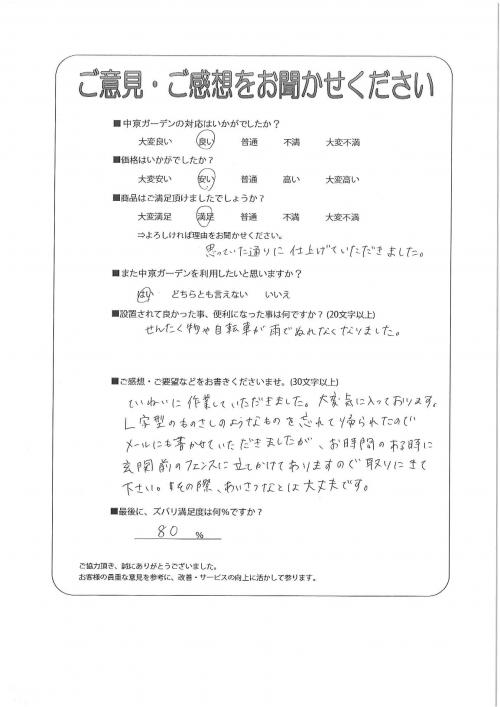 ご意見・ご感想をお聞かせください
■中京ガーデンの対応はいかがでしたか？
大変良い 良い 普通 不満 大変不満
■価格はいかがでしたか？
大変安い 安い 普通 高い 大変高い
■商品はご満足頂けましたでしょうか？
大変満足 満足 普通 不満 大変不満
⇒よろしければ理由をお聞かせください。
思っていた通りに仕上げていただきました。
■また中京ガーデンを利用したいと思いますか？
はい どちらとも言えない いいえ
■設置されて良かった事、便利になった事は何ですか？(20文字以上)
せんたく物や自転車が雨でぬれなくなりました。
■ご感想・ご要望などをお書きくださいませ。(30文字以上)
ていねいに作業していただきました。大変気に入っております。
L字型のものさしのようなものを忘れて帰られたので
メールにも書かせていただきましたが、お時間のある時に
玄関前のフェンスに立てかけておりますので取りにきて
下さい。その際、あいさつなどは大丈夫です。
■最後に、ズバリ満足度は何％ですか？
80 %
ご協力頂き、誠にありがとうございました。
お客様の貴重な意見を参考に、改善・サービスの向上に活かして参ります。